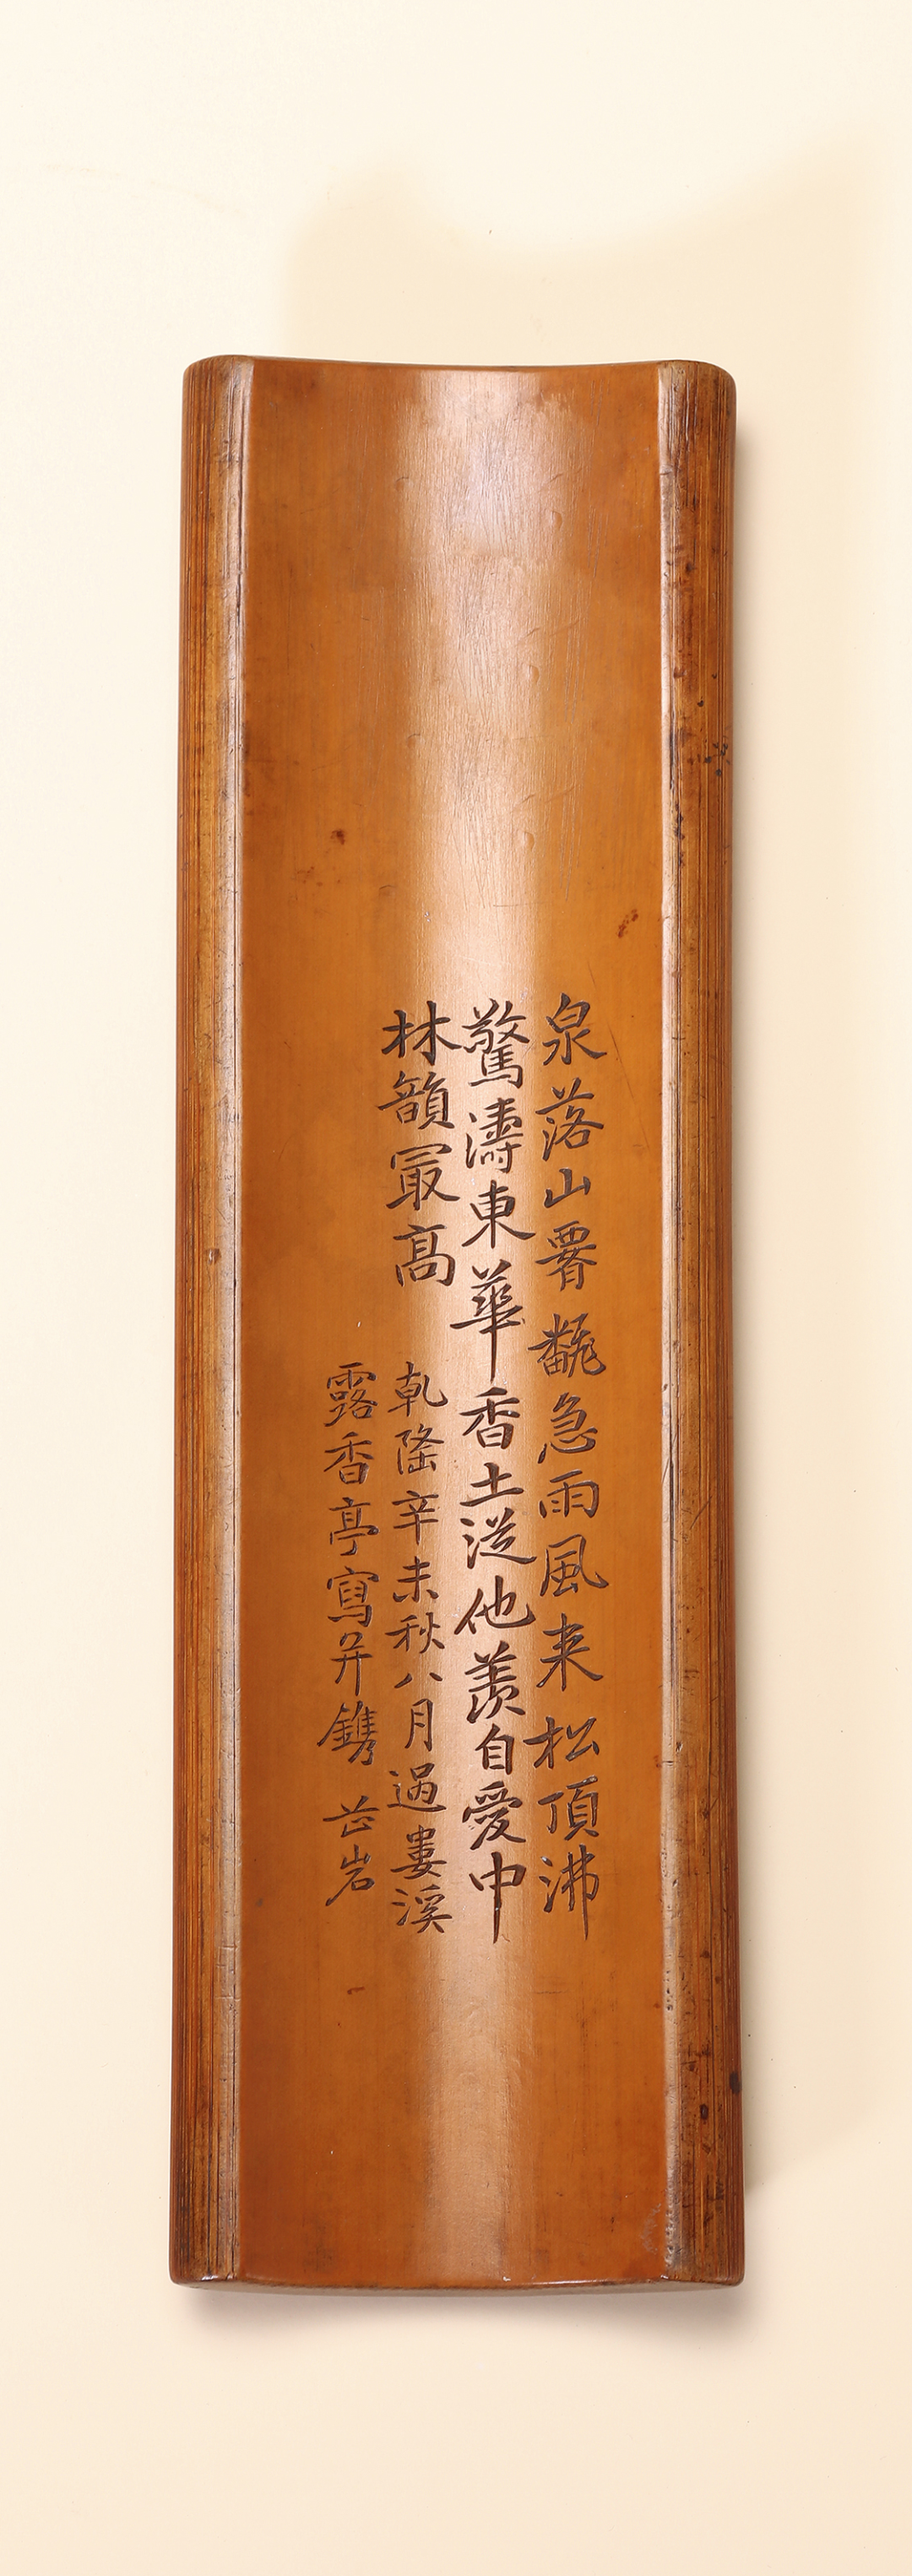 泉落山臋飜急雨風来松頂沸
驚濤東華香土從他羨自愛中
林韻冣高
乾隆辛未秋八月過婁溪
露香亭寫并鐫 芷岩